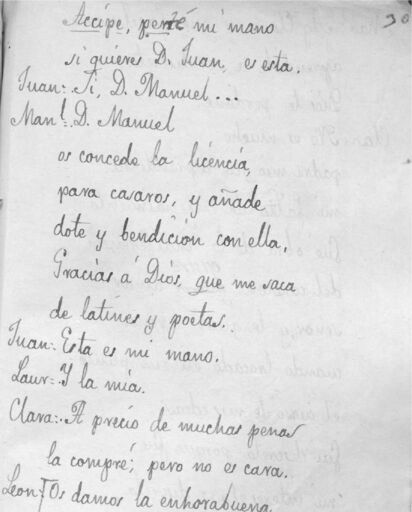 Accipe, perzé mi mano
si quieres D. Juan, es esta.
Juan: Si, D. Manuel...
Manl. D. Manuel
os concede la licencia,
para casaros, y añade
dote y bendición con ella,
Gracias á Dios, que me saca
de latines y poetas.
Juan: Esta es mi mano.
Laur: Y la mia.
Clara: A precio de muchas penas
la compré; pero no es cara.
Leon: Os damos la enhorabuena